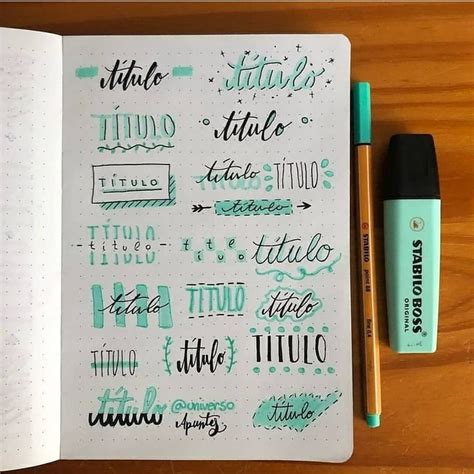 título
título
TÍTULO
título
TÍTULO
título
TÍTULO
título
TÍTULO
-título-
título
título
título
TÍTULO
título
TÍTULO
título
TÍTULO
título
@universo
Apuntes
título
STABILO point 88 fine 0.4
STABILO BOSS
ORIGINAL